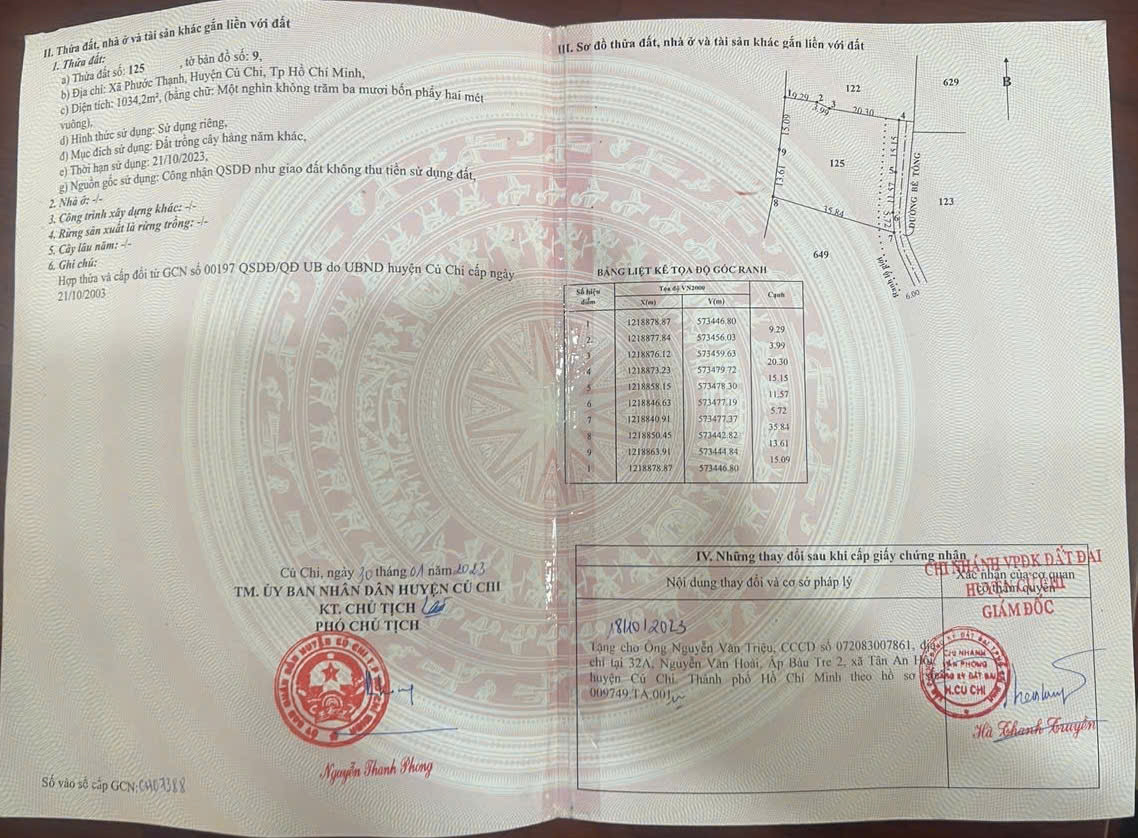 II. Thửa đất, nhà ở và tài sản khác gắn liền với đất
1. Thửa đất:
a) Thửa đất số: 125 , tờ bản đồ số: 9,
b) Địa chỉ: Xã Phước Thạnh, Huyện Củ Chi, Tp Hồ Chí Minh,
c) Diện tích: 1034,2m², (bằng chữ: Một nghìn không trăm ba mươi bốn phẩy hai mét
vuông),
d) Hình thức sử dụng: Sử dụng riêng,
đ) Mục đích sử dụng: Đất trồng cây hàng năm khác,
e) Thời hạn sử dụng: 21/10/2023,
g) Nguồn gốc sử dụng: Công nhận QSDĐ như giao đất không thu tiền sử dụng đất,
2. Nhà ở: -/-
3. Công trình xây dựng khác: -/-
4. Rừng sản xuất là rừng trồng: -/-
5. Cây lâu năm: -/-
6. Ghi chú:
Hợp thửa và cấp đổi từ GCN số 00197 QSDĐ/QĐ UB do UBND huyện Củ Chi cấp ngày
21/10/2003
Củ Chi, ngày 30 tháng 01 năm 2023
TM. ỦY BAN NHÂN DÂN HUYỆN CỦ CHI
KT. CHỦ TỊCH
PHÓ CHỦ TỊCH
Nguyễn Thanh Phong
Số vào sổ cấp GCN: CH07388
III. Sơ đồ thửa đất, nhà ở và tài sản khác gắn liền với đất
122
629
B
1 9.29 2
3.99 3
20.30 4
15.09
15.15
9
125
5
13.61
11.57
ĐƯỜNG BÊ TÔNG
123
8
35.84
5.72
6
7
649
6.00
BẢNG LIỆT KÊ TỌA ĐỘ GÓC RANH
Số hiệu điểm
Tọa độ VN2000
Cạnh
X(m) Y(m)
1 1218878.87 573446.80
9.29
2 1218877.84 573456.03
3.99
3 1218876.12 573459.63
20.30
4 1218873.23 573479.72
15.15
5 1218858.15 573478.30
11.57
6 1218846.63 573477.19
5.72
7 1218840.91 573477.37
35.84
8 1218850.45 573442.82
13.61
9 1218863.91 573444.84
15.09
1 1218878.87 573446.80
IV. Những thay đổi sau khi cấp giấy chứng nhận
Nội dung thay đổi và cơ sở pháp lý
Xác nhận của cơ quan
có thẩm quyền
CHI NHÁNH VPĐK ĐẤT ĐAI
HUYỆN CỦ CHI
GIÁM ĐỐC
Tặng cho Ông Nguyễn Văn Triệu, CCCD số 072083007861, địa
chỉ tại 32A, Nguyễn Văn Hoài, Ấp Bàu Tre 2, xã Tân An Hội,
huyện Củ Chi, Thành phố Hồ Chí Minh theo hồ sơ
009749.TA.001
CHI NHÁNH
VĂN PHÒNG
ĐĂNG KÝ ĐẤT ĐAI
H.CỦ CHI
Hà Thanh Truyền